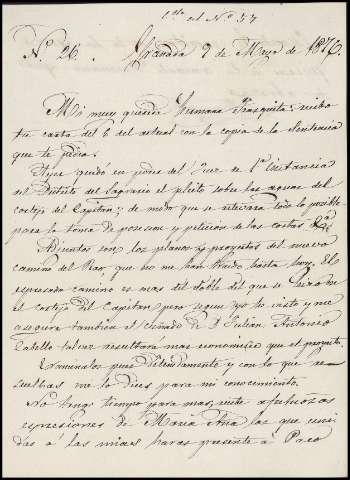 cto el Nº 57
Nº 26. Granada 9 de Mayo de 1876.
Mi muy querida hermana Frasquita: recibo
tu carta del 6 del actual con la copia de la Sentencia
que te pedia.
Ayer quedó en poder del Juez de 1ª instancia
del Distrito del Sagrario el pleito sobre las aguas del
cortijo del Capitan; de modo que se activara todo lo posible
para la toma de posesion y peticion de las costas &ª
Adjuntos son los planos y proyectos del nuevo
camino del Rao, que no me han traido hasta hoy. El
expresado camino es mas del doble del que se hizo en
el cortijo del Capitan pero segun yo lo visto y me
asegura tambien el cuñado de D. Julian, Antonio
Cabello tal vez resultara mas economico que el proyecto.
Examinalos pues detenidamente y con lo que re-
suelbas me lo dices para mi conocimiento.
No tengo tiempo para mas; recibe afectuosas
expresiones de Maria Ana las que uni-
das á las mias haras presente á Paco